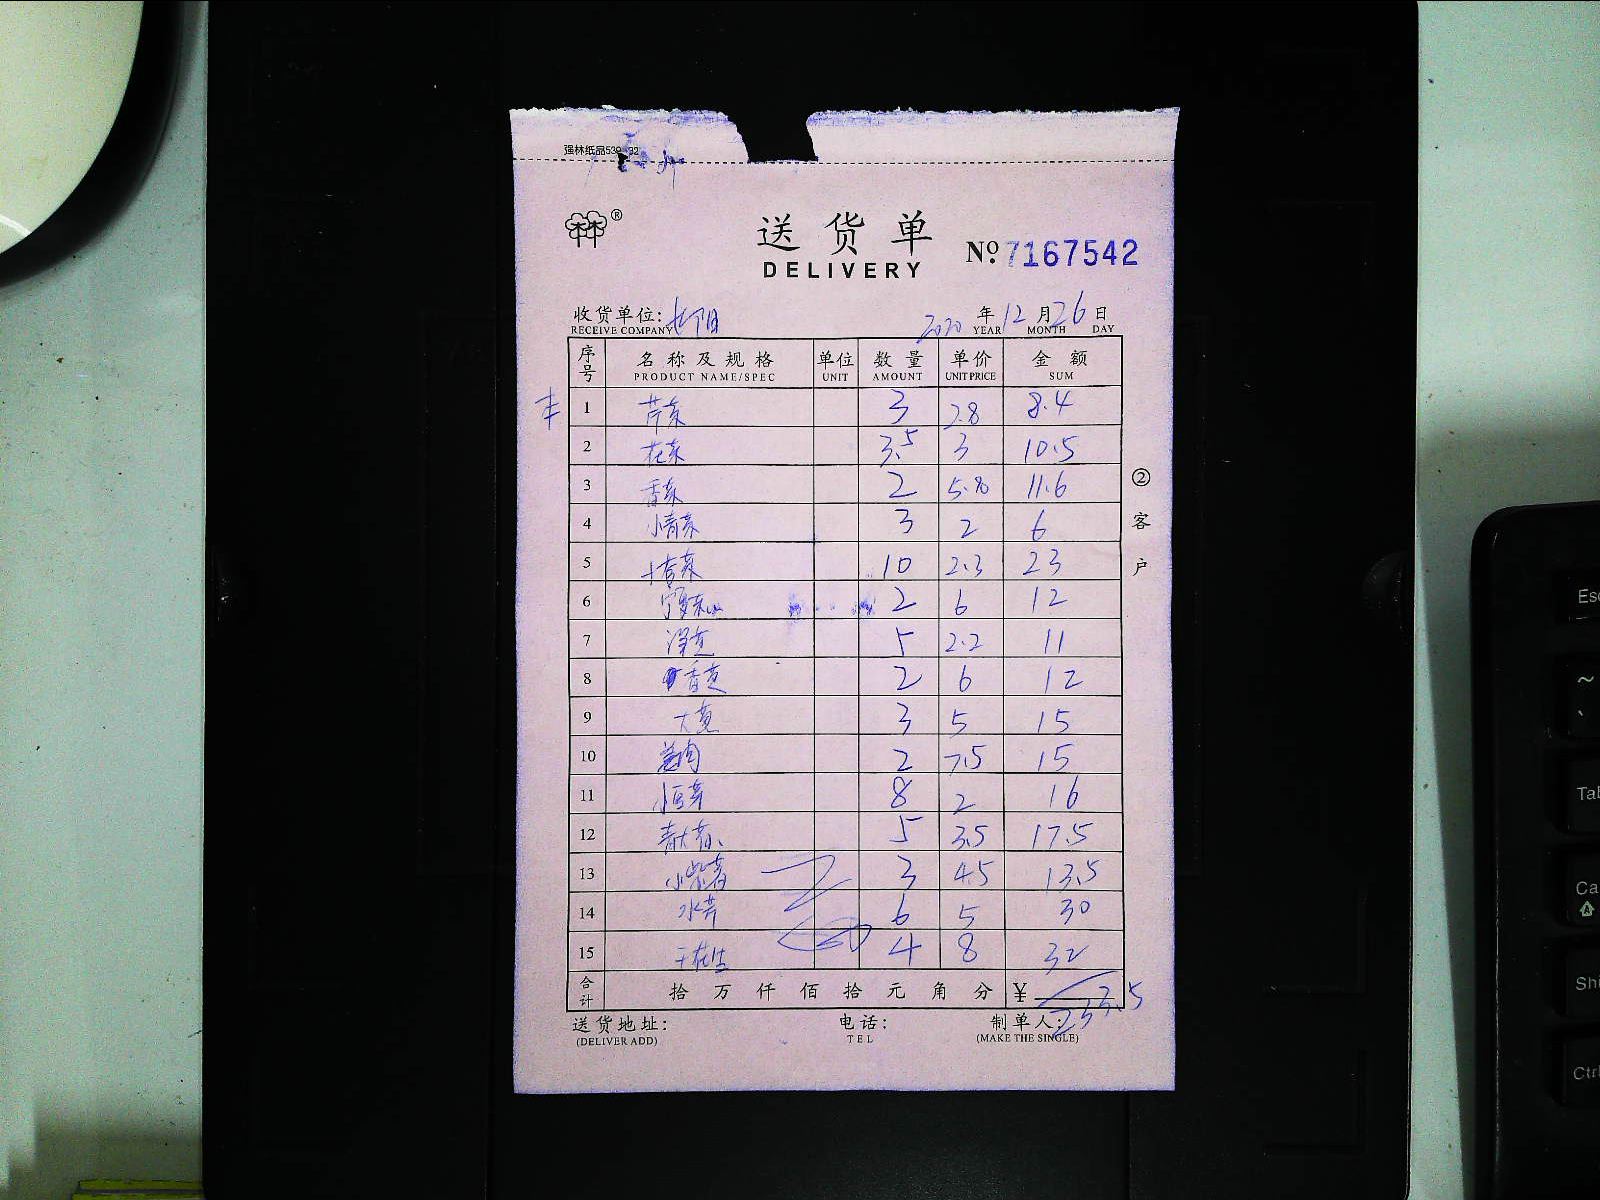 强林纸品539-32
送货单
DELIVERY
No. 7167542
收货单位:
RECEIVE COMPANY
2020 年 12 月 26 日
YEAR MONTH DAY
序号 名称及规格 单位 数量 单价 金额
PRODUCT NAME/SPEC UNIT AMOUNT UNIT PRICE SUM
1 芹菜 3 2.8 8.4
2 花菜 3.5 3 10.5
3 香菜 2 5.8 11.6
4 小青菜 3 2 6
5 10 2.3 23
6 2 6 12
7 5 2.2 11
8 香 2 6 12
9 大葱 3 5 15
10 2 7.5 15
11 小豆芽 8 2 16
12 5 3.5 17.5
13 3 4.5 13.5
14 水芹 6 5 30
15 干花生 4 8 32
合计 拾 万 仟 佰 拾 元 角 分 ¥ 233.5
② 客户
送货地址: 电话: 制单人:
(DELIVER ADD) TEL (MAKE THE SINGLE)
Esc
~
Tab
Ctrl